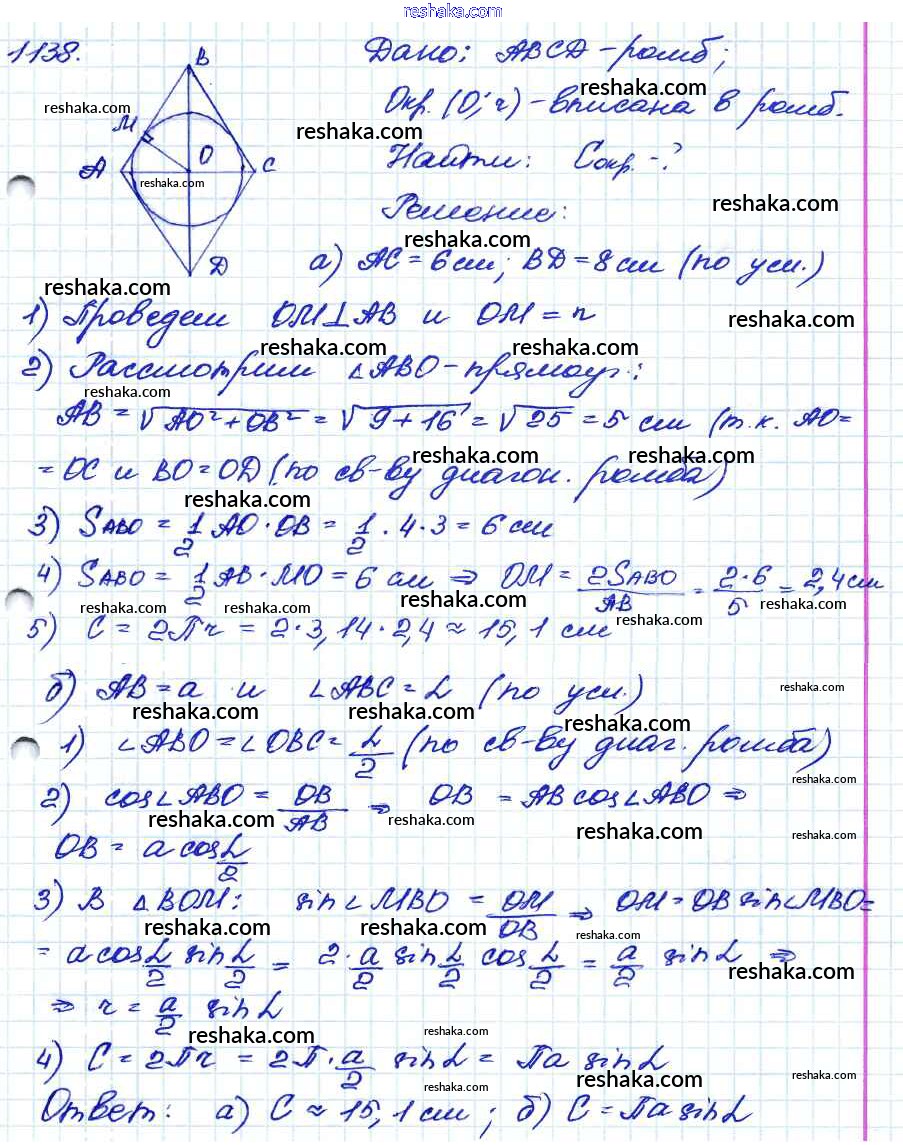 reshaka.com
1138.
B
M
O
A
C
D
Дано: ABCD – ромб;
Окр. (O; r) – вписана в ромб.
Найти: Cокр. – ?
Решение:
а) AC = 6 см; BD = 8 см (по усл.)
1) Проведем OM ⊥ AB и OM = r
2) Рассмотрим △ABO – прямоуг.:
AB = √(AO² + OB²) = √(9 + 16) = √25 = 5 см (т.к. AO =
= OC и BO = OD (по св-ву диагон. ромба)
3) S_ABO = 1/2 AO · OB = 1/2 · 4 · 3 = 6 см
4) S_ABO = 1/2 AB · MO = 6 см ⇒ OM = 2S_ABO/AB = 2·6/5 = 2,4 см
5) C = 2πr = 2 · 3,14 · 2,4 ≈ 15,1 см
б) AB = a и ∠ABC = α (по усл.)
1) ∠ABO = ∠OBC = α/2 (по св-ву диаг. ромба)
2) cos∠ABO = OB/AB ⇒ OB = AB cos∠ABO ⇒
OB = a cos α/2
3) В △BOM: sin∠MBO = OM/OB ⇒ OM = OB sin∠MBO =
= a cos α/2 sin α/2 = 2 · a/2 sin α/2 cos α/2 = a/2 sin α ⇒
⇒ r = a/2 sin α
4) C = 2πr = 2π · a/2 sin α = πa sin α
Ответ: а) C ≈ 15,1 см; б) C = πa sin α